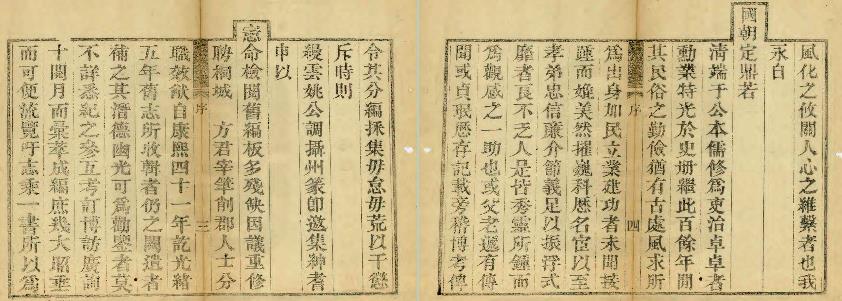 風化之攸關人心之維繫者也我
永白
國朝定鼎若
清端于公本儒修為吏治卓卓者
勳業特光於史冊繼此百餘年間
其民俗之勤儉猶有古處風求所
序 四
為出身加民立業建功者未聞接
踵而媲美然擢巍科歷名宦以至
孝弟忠信廉介節義足以振浮式
靡者良不乏人是皆秀靈所鍾而
為觀感之一助也或父老遞有傳
聞或貞珉歷存記載旁稽博考傳
令其分編採集毋怠毋荒以干愆
斥時則
縵雲姚公調攝州篆卽邀集紳耆
申以
憲命檢閱舊編板多殘缺因議重修
聘桐城 方君宰筆削郡人士分
序 三
職效猷自康熙四十一年訖光緒
五年舊志所收輯者仍之闕遺者
補之其潛德幽光可為勸鑒者莫
不詳悉紀之參互考訂博訪廣詢
十閱月而彙萃成編庶幾大昭垂
而可便流覽吁志乘一書所以為